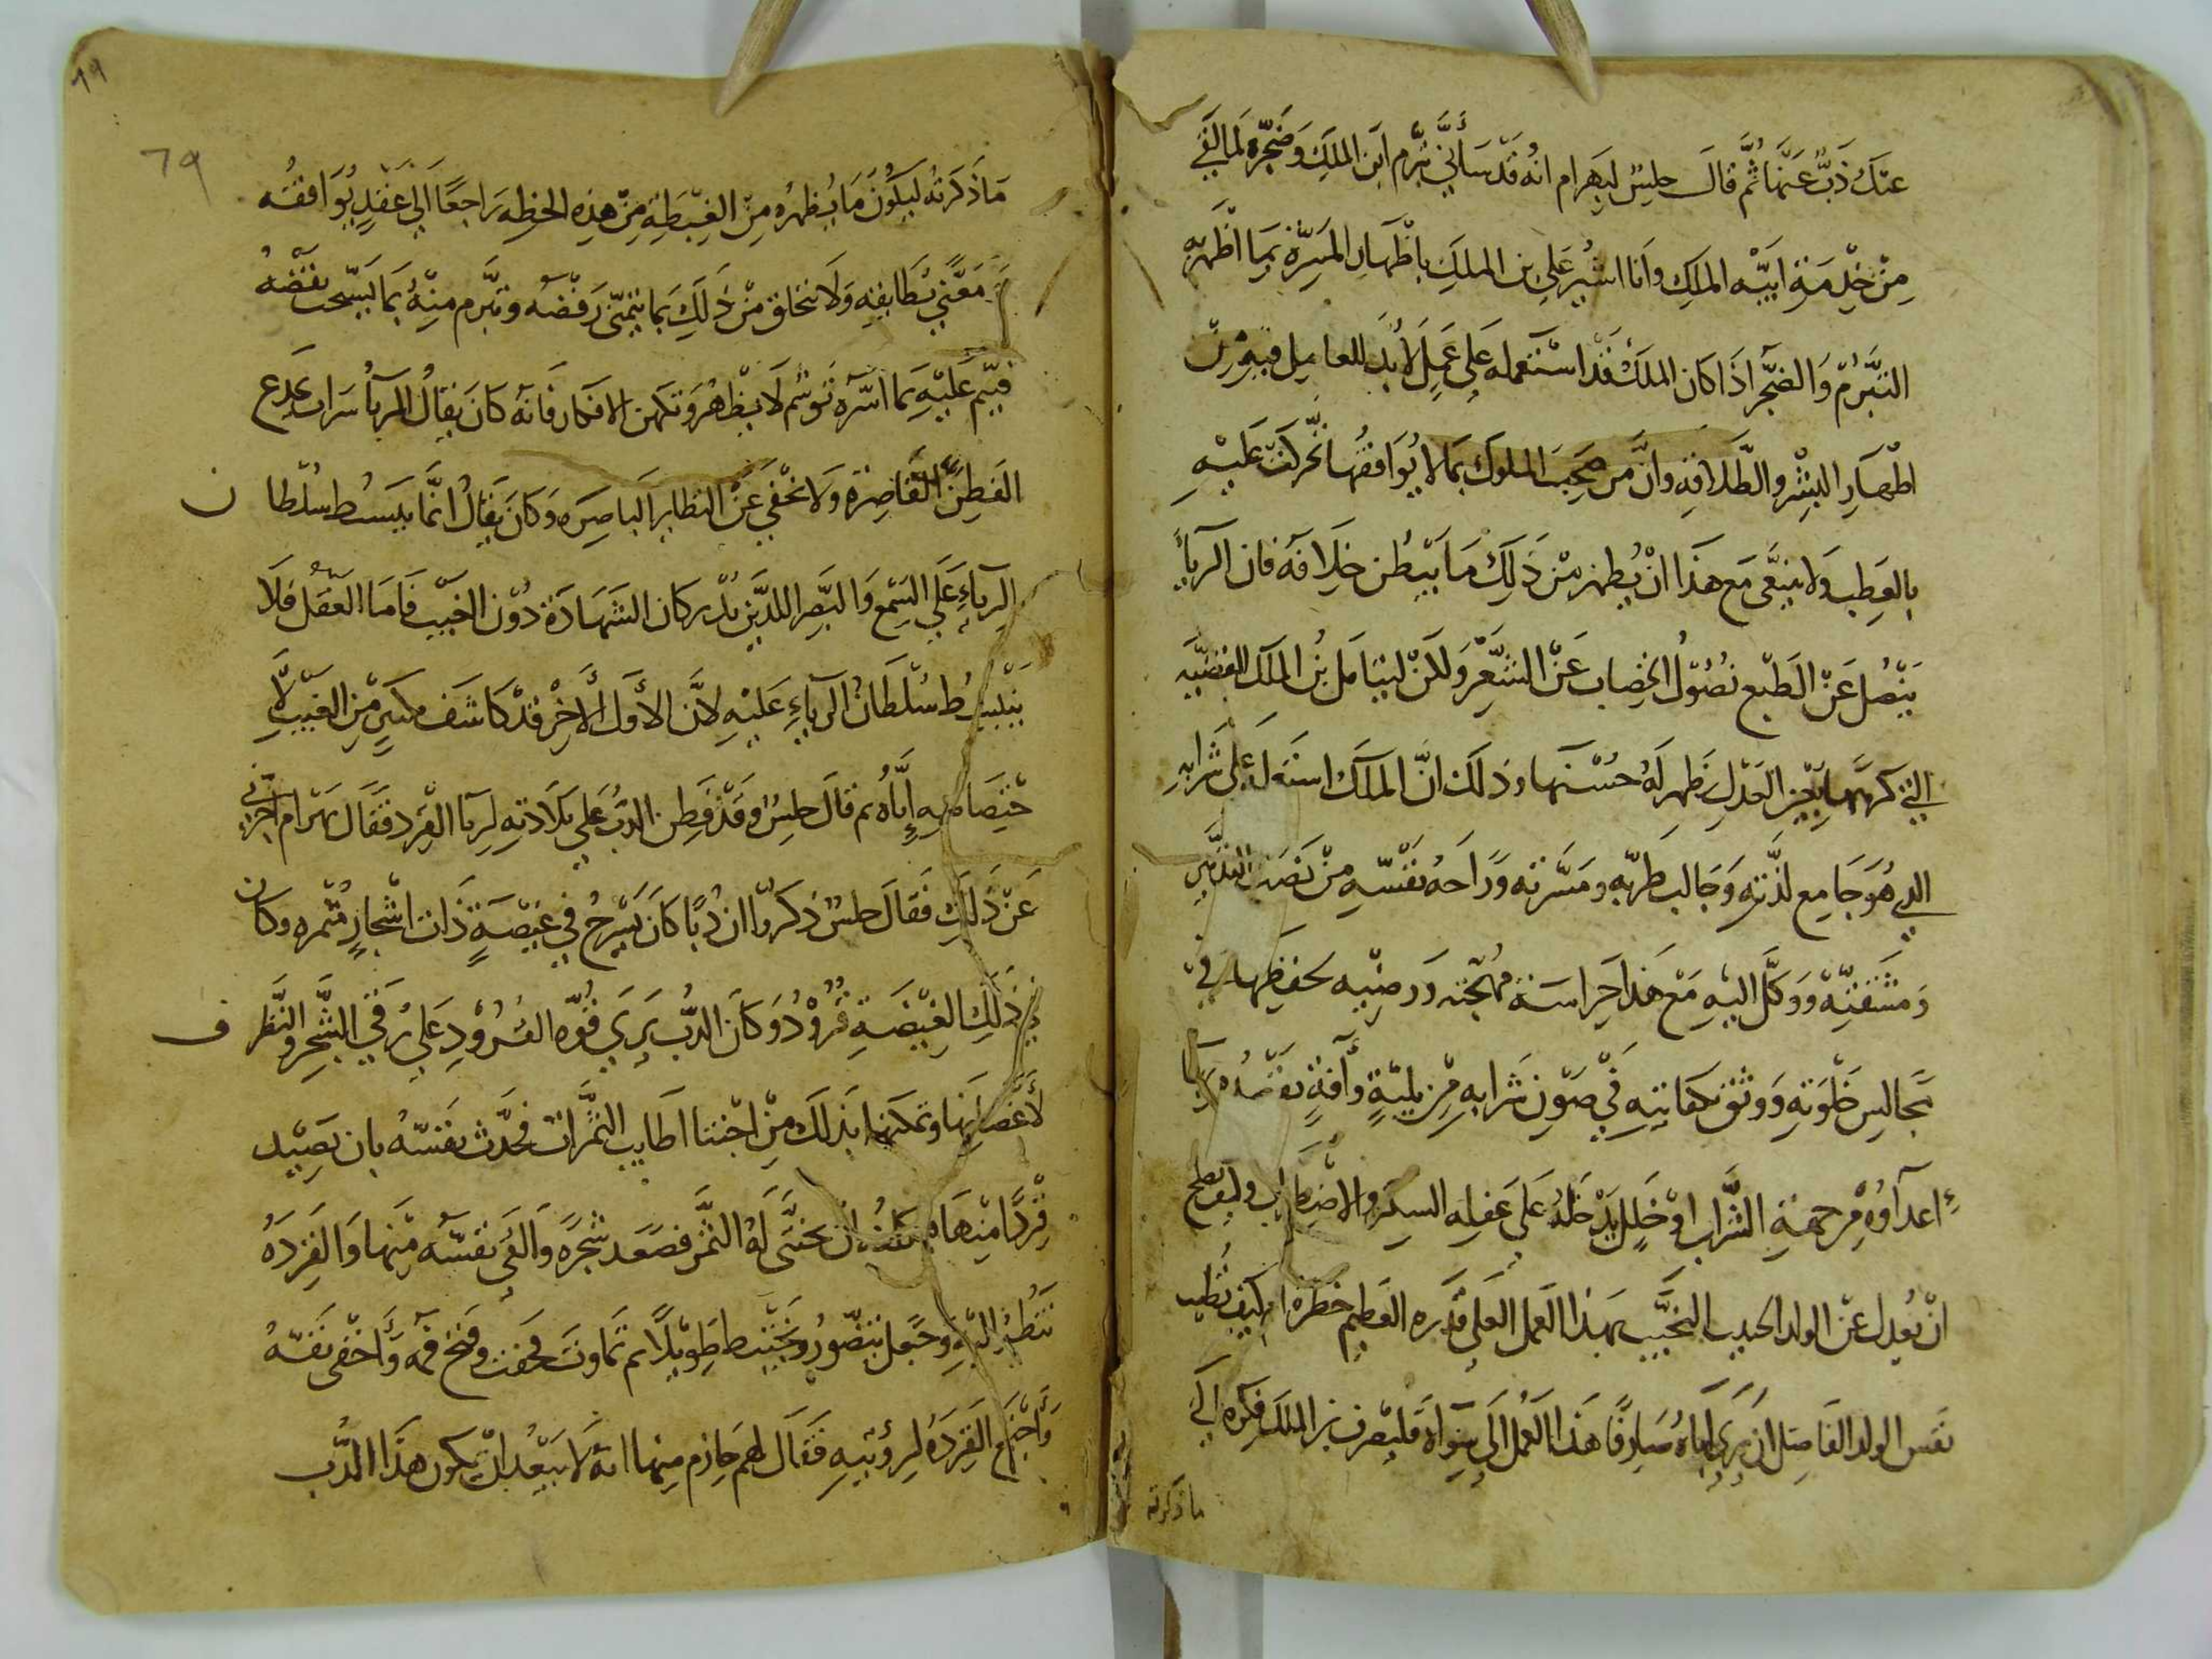 عنك ذبّ عنها ثُمَّ قال حليس لبهرام انه قد سأنى تبرّم ابن الملك وضجره لما القى
مِنْ خِدْمَةِ ابيه الملك وانا اشير على بن الملك باظهار المسرّة بما اظهر به
التبرّم والضّجر اذا كان الملك قد استعمله على عمل لا بد للعامل فيه من
اظهار البشر والطّلاقه وانّ من صحب الملوك بما لا يوافقها تحركت عليه
بالعطب ولا ينبغى مع هذا ان يظهر من ذلك ما يبطن خلافه فان الرياء
ينصل عن الطبع نصول الخضاب عن الشّعر ولكن ليتامل بن الملك القضيّه
التي كرهها بعين العدل تظهر له حسنها وذلك انّ الملك استعمله على شرابه
الذي هو جامع لذّته وجالب طربه ومسرّته وراحه نفسه من نصب التدبير
ومشقته ووكّل اليه مع هذا حراسة مهجته ورضيه لحفظها في
مجالس خلوته ووثق بكفايته في صون شرابه من بلية وآفة يقصده بها
اعداوه من جهة الشّراب او خلل يدخله على عقله السكر والاضطراب وليف يصلح
انْ يعدل عن الولد الحبيب النجيب بهذا العمل العلى قدره العظيم خطره ام كيف تطيب
نفس الولد الفاضل ان يرى اباه صارفا هذا العمل الى سواه فليصرف بن الملك فكره الى
ما ذكرته
٦٩
ما ذكرته ليكون ما يظهره من الغبطة من هذه الخطه راجعًا الى عقد يوافقه
معنى يطابقه ولا يتخلق من ذلك بما ينتمى رفضه وتبرّم منه بما يستحب نقضه
فينم عليه بما اسرّه توسّم لا يظهر وتكهن الافكار فانه كان يقال الريا سراب يخدع
الفطن القاصرة ولا يخفى عن النظاير الباصره وكان يقال انّما يبسط سلطان
الرياء على السمع والبصر اللذين يدركان الشهادة دون الغيب فاما العقل فلا
ينبسط سلطان الرياء عليه لانّ الاول الآخر قد كاشف من الغيب لا
ختصاصه به اياه ثم قال حليس وقد فطن الدب على بلادته لريا القرد فقال بهرام اخبرني
عن ذلك فقال حليس ذكروا ان دبًا كان يسرح في غيضة ذات اشجار مثمره وكان
في ذلك الغيضة قرود وكان الدب يرى قوّه القرود على رقي الشجر والنّظر ف
لاغصانها وتمكنها بذلك من اجتنا اطايب الثمرات فحدّث نفسه بان يصيد
قردًا منها ان يجتنى له الثمر فصعد شجره والقى نفسه منها والقرده
تنظر اليه وجعل يتضّور ويختبط طويلا ثم تماوت فخفت وفتح فمه واخفى نفسه
واجتمع القرده لرؤيته فقال لهم حازم منها انه لا يبعد ان يكون هذا الدب